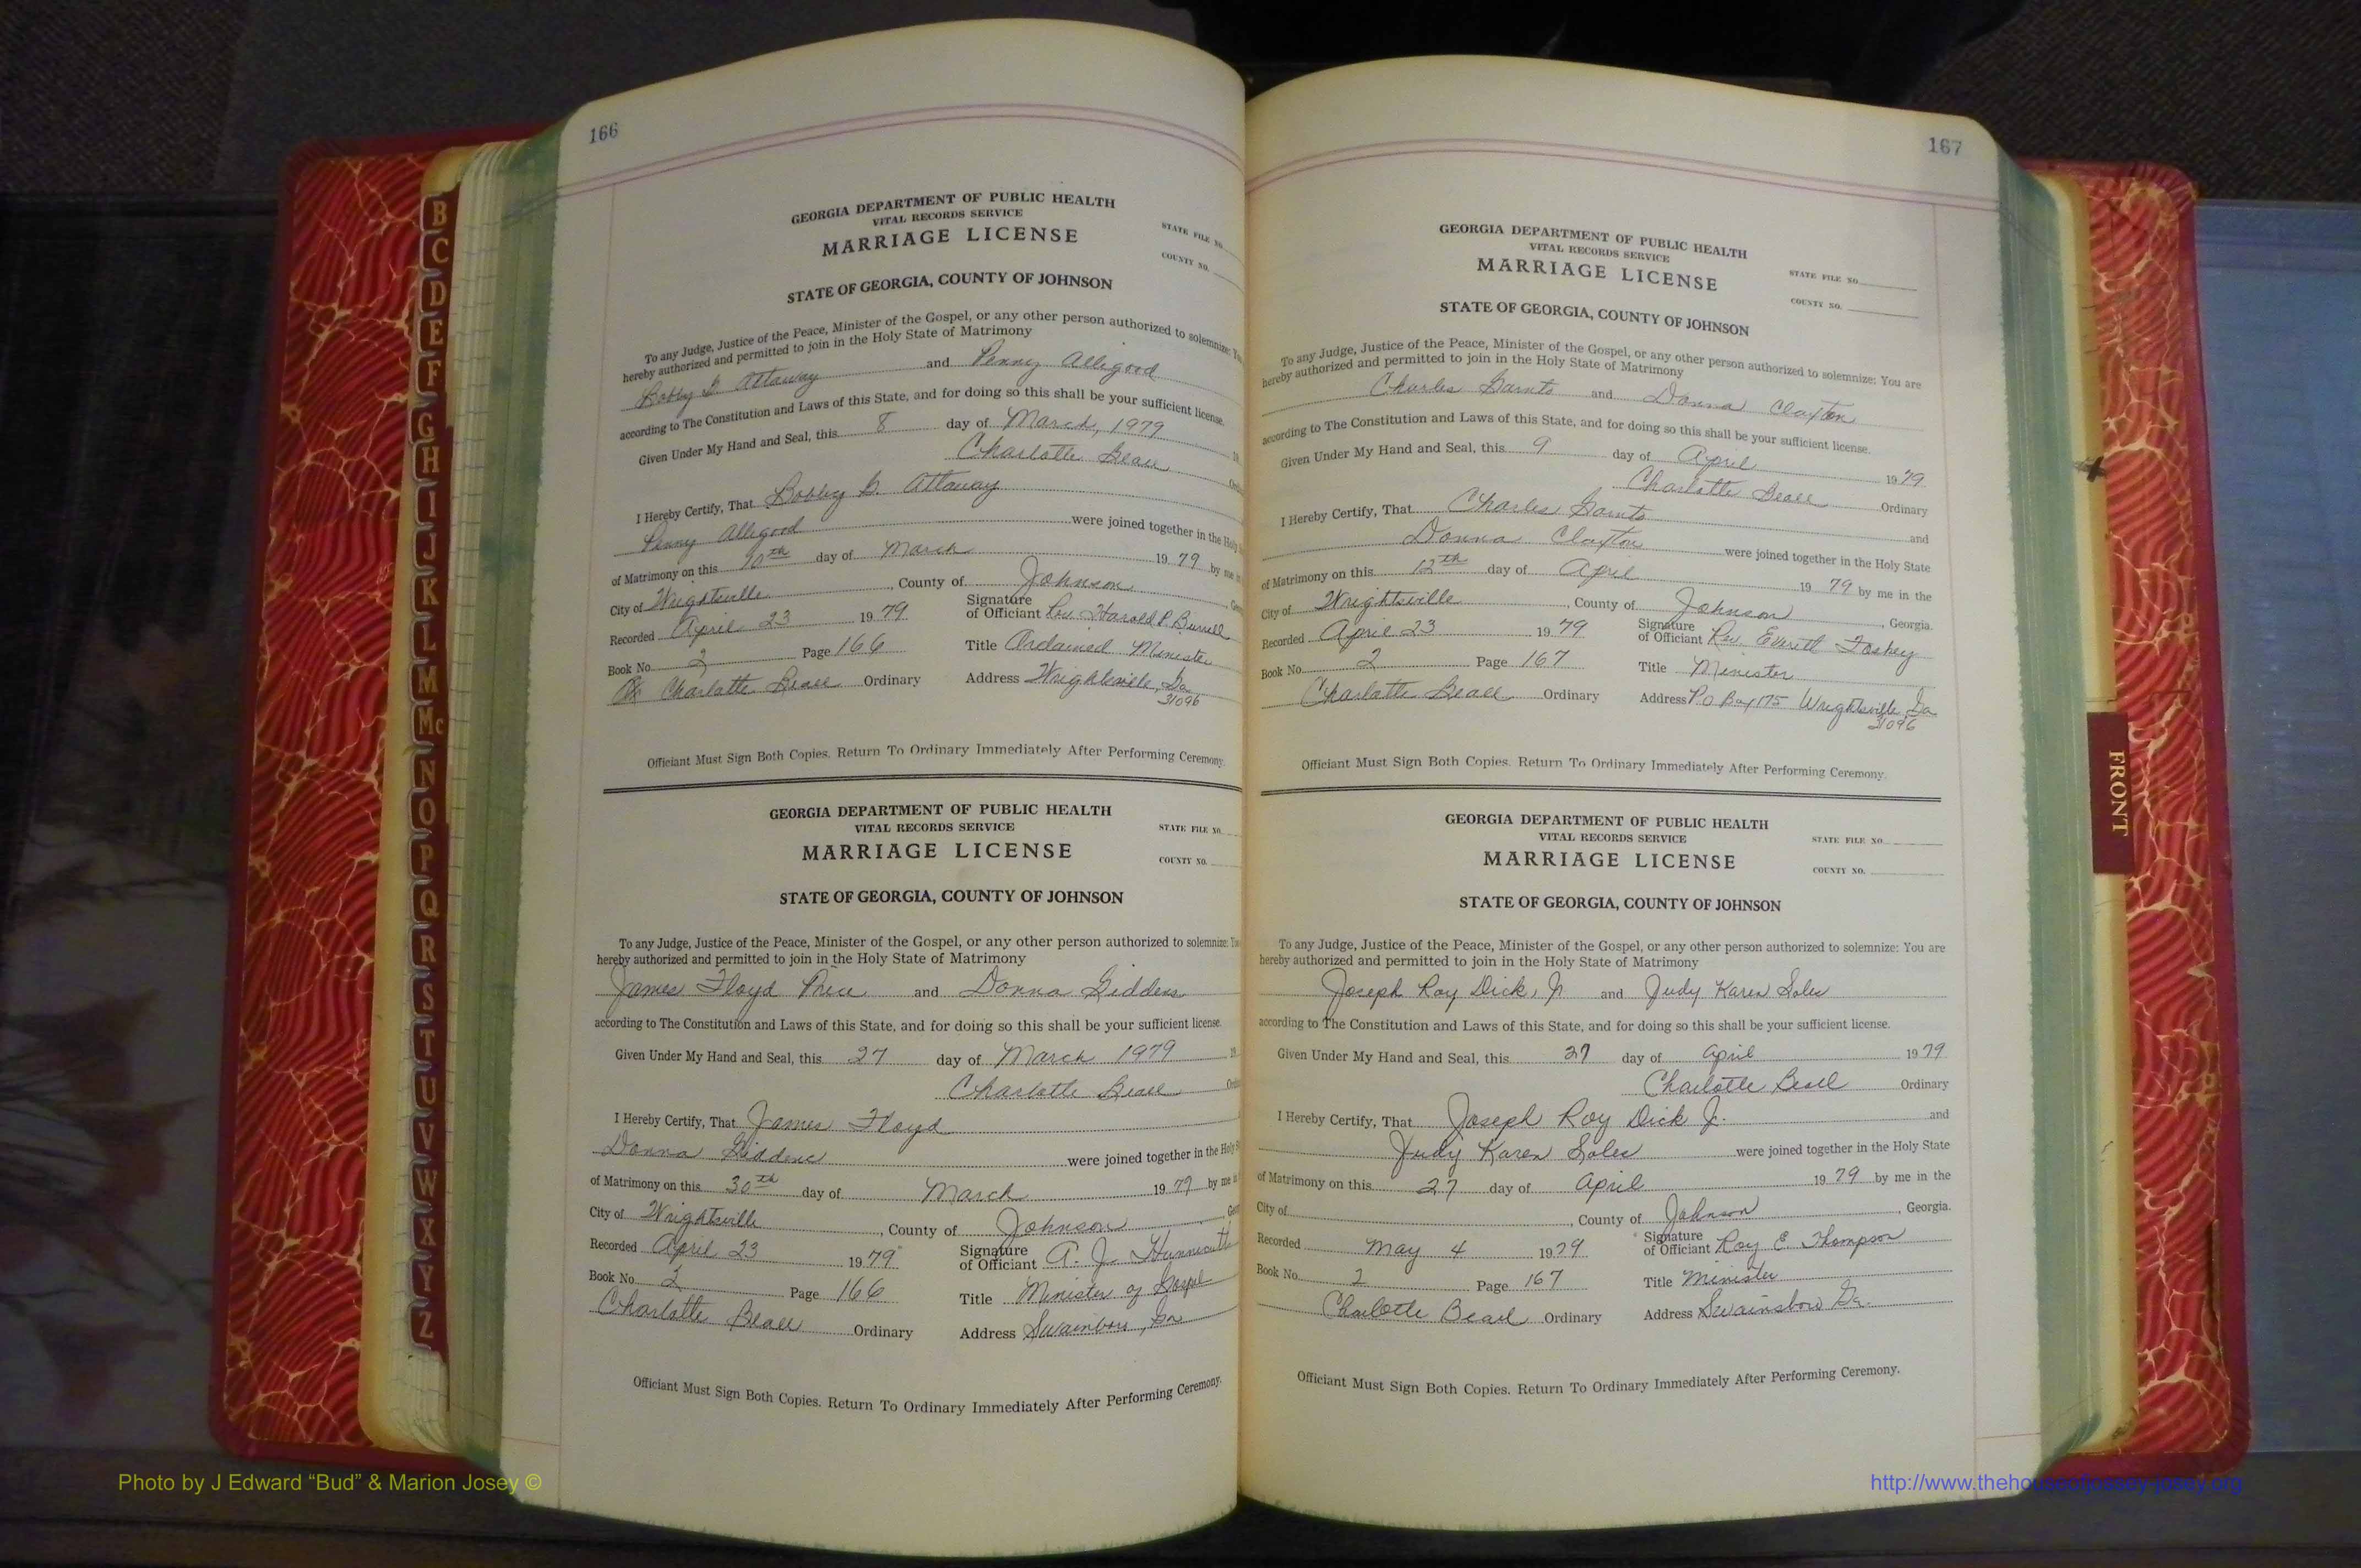 166
GEORGIA DEPARTMENT OF PUBLIC HEALTH
VITAL RECORDS SERVICE
MARRIAGE LICENSE
STATE FILE NO.
COUNTY NO.
STATE OF GEORGIA, COUNTY OF JOHNSON
To any Judge, Justice of the Peace, Minister of the Gospel, or any other person authorized to solemnize:
hereby authorized and permitted to join in the Holy State of Matrimony
Bobby G. Attaway and Penny Alligood
according to The Constitution and Laws of this State, and for doing so this shall be your sufficient license.
Given Under My Hand and Seal, this 8 day of March, 1979
Charlotte Beall
I Hereby Certify, That Bobby G. Attaway
Penny Alligood were joined together in the Holy
of Matrimony on this 10th day of March 19 79 by me
City of Wrightsville, County of Johnson
Recorded April 23 19 79 Signature of Officiant Rev. Harold P. Burrell
Book No. 2 Page 166 Title Ordained Minister
Charlotte Beall Ordinary Address Wrightsville, Ga
31096
Officiant Must Sign Both Copies. Return To Ordinary Immediately After Performing Ceremony.
GEORGIA DEPARTMENT OF PUBLIC HEALTH
VITAL RECORDS SERVICE
MARRIAGE LICENSE
STATE FILE NO.
COUNTY NO.
STATE OF GEORGIA, COUNTY OF JOHNSON
To any Judge, Justice of the Peace, Minister of the Gospel, or any other person authorized to solemnize:
hereby authorized and permitted to join in the Holy State of Matrimony
James Floyd Price and Donna Giddens
according to The Constitution and Laws of this State, and for doing so this shall be your sufficient license.
Given Under My Hand and Seal, this 27 day of March 1979
Charlotte Beall
I Hereby Certify, That James Floyd
Donna Giddens were joined together in the Holy
of Matrimony on this 30th day of March 19 79 by me
City of Wrightsville, County of Johnson
Recorded April 23 19 79 Signature of Officiant A. J. Hunnicutt
Book No. 2 Page 166 Title Minister of Gospel
Charlotte Beall Ordinary Address Swainboro, Ga
Officiant Must Sign Both Copies. Return To Ordinary Immediately After Performing Ceremony.
167
GEORGIA DEPARTMENT OF PUBLIC HEALTH
VITAL RECORDS SERVICE
MARRIAGE LICENSE
STATE FILE NO.
COUNTY NO.
STATE OF GEORGIA, COUNTY OF JOHNSON
To any Judge, Justice of the Peace, Minister of the Gospel, or any other person authorized to solemnize: You are
hereby authorized and permitted to join in the Holy State of Matrimony
Charles and Donna Claxton
according to The Constitution and Laws of this State, and for doing so this shall be your sufficient license.
Given Under My Hand and Seal, this 9 day of April 19 79
Charlotte Beall Ordinary
I Hereby Certify, That Charles and
Donna Claxton were joined together in the Holy State
of Matrimony on this 12th day of April 19 79 by me in the
City of Wrightsville, County of Johnson, Georgia.
Recorded April 23 19 79 Signature of Officiant Rev. Everett Foskey
Book No. 2 Page 167 Title Minister
Charlotte Beall Ordinary Address P O Box 175 Wrightsville Ga
31096
Officiant Must Sign Both Copies. Return To Ordinary Immediately After Performing Ceremony.
GEORGIA DEPARTMENT OF PUBLIC HEALTH
VITAL RECORDS SERVICE
MARRIAGE LICENSE
STATE FILE NO.
COUNTY NO.
STATE OF GEORGIA, COUNTY OF JOHNSON
To any Judge, Justice of the Peace, Minister of the Gospel, or any other person authorized to solemnize: You are
hereby authorized and permitted to join in the Holy State of Matrimony
Joseph Roy Dick, Jr and Judy Karen Soles
according to The Constitution and Laws of this State, and for doing so this shall be your sufficient license.
Given Under My Hand and Seal, this 27 day of April 19 79
Charlotte Beall Ordinary
I Hereby Certify, That Joseph Roy Dick Jr. and
Judy Karen Soles were joined together in the Holy State
of Matrimony on this 27 day of April 19 79 by me in the
City of , County of Johnson, Georgia.
Recorded May 4 19 79 Signature of Officiant Roy E. Thompson
Book No. 2 Page 167 Title Minister
Charlotte Beall Ordinary Address Swainsboro Ga.
Officiant Must Sign Both Copies. Return To Ordinary Immediately After Performing Ceremony.
B
C
D
E
F
G
H
I
J
K
L
M
Mc
N
O
P
Q
R
S
T
U
V
W
X
Y
Z
FRONT
Photo by J Edward “Bud” & Marion Josey ©
http://www.thehouseofjossey-josey.org